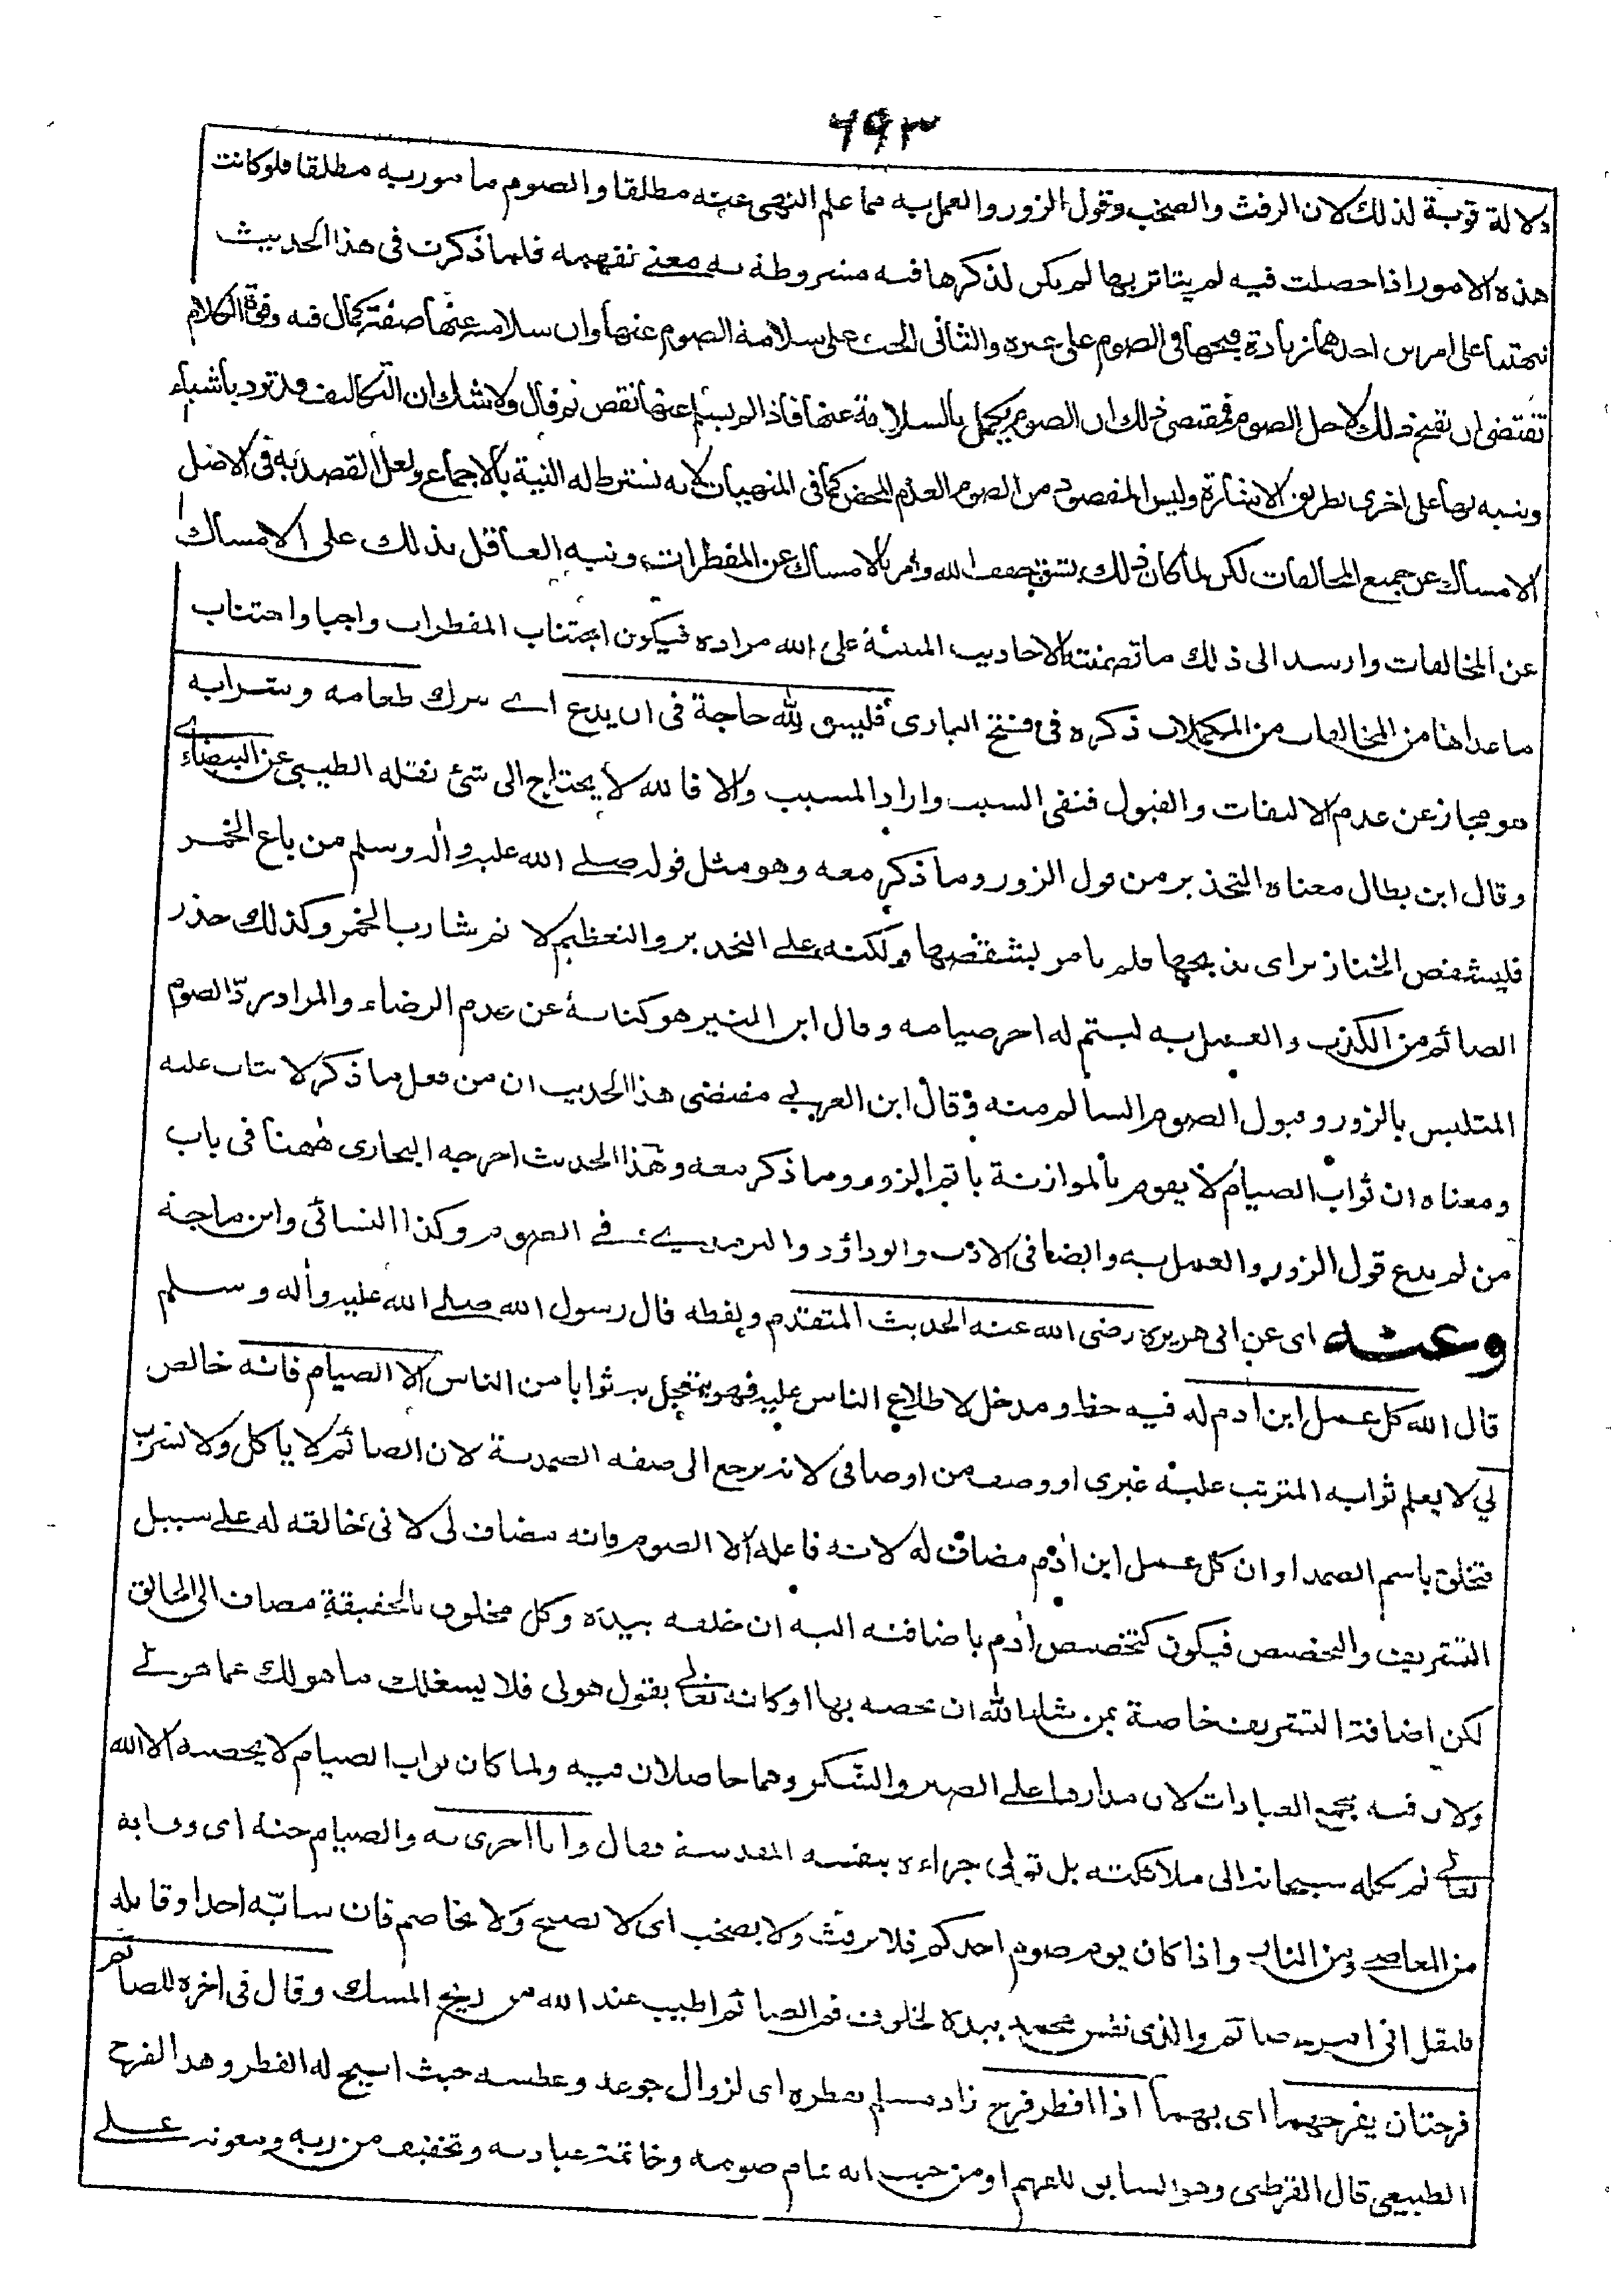 ٦٩٣
دلالة قوية لذلك لان الرفث والصخب وقول الزور والعمل به مما علم النهى عنه مطلقا والصوم مامور به مطلقا فلو كانت
هذه الامور اذا حصلت فيه لم يتاثر بها لم يكن لذكرها فيه مشروطة به معنى نفهمه فلما ذكرت فى هذا الحديث
نبهتنا على امرين احدهما زيادة قبحها فى الصوم على غيره والثانى الحث على سلامة الصوم عنها وان سلامته عنها صفة كمال فيه وقوة الكلام
تقتضى ان تقبح ذلك لاجل الصوم فمقتضى ذلك ان الصوم يكمل بالسلامة عنها فاذا لم يسلم عنها نقص ثم قال ولا شك ان التكاليف قد ترد باشياء
وينبه بها على اخرى بطريق الاشارة وليس المقصود من الصوم العدم المحض كما فى المنهيات لانه تشترط له النية بالاجماع ولعل القصد به فى الاصل
الامساك عن جميع المخالفات لكن لما كان ذلك يشق خفف الله وامر بالامساك عن المفطرات ونبه العاقل بذلك على الامساك
عن المخالفات وارشد الى ذلك ما تضمنته الاحاديث المبينة على الله مراده فيكون اجتناب المفطرات واجبا واجتناب
ما عداها من المخالفات من المكملات ذكره فى فتح البارى فليس لله حاجة فى ان يدع اى يترك طعامه وشرابه
هو مجاز عن عدم الالتفات والقبول فنفى السبب واراد المسبب والا فالله لا يحتاج الى شئ نقله الطيبى عن البيضاوى
وقال ابن بطال معناه التحذير من قول الزور وما ذكر معه وهو مثل قوله صلى الله عليه واله وسلم من باع الخمر
فليشقص الخنازير اى يذبحها فلم يامر بشقصها ولكنه على التحذير والتعظيم لاثم شارب الخمر وكذلك حذر
الصائم من الكذب والعمل به ليتم له اجر صيامه وقال ابن المنير هو كناية عن عدم الرضاء والمراد رد الصوم
المتلبس بالزور وقبول الصوم السالم منه وقال ابن العربى مقتضى هذا الحديث ان من فعل ما ذكر لا يثاب عليه
ومعناه ان ثواب الصيام لا يقوم بالموازنة باثم الزور وما ذكر معه وهذا الحديث اخرجه البخارى ههنا فى باب
من لم يدع قول الزور والعمل به وايضا فى الادب وابوداؤد والترمذى فى الصوم وكذا النسائى وابن ماجة
وعنه اى عن ابى هريرة رضى الله عنه الحديث المتقدم ولفظه قال رسول الله صلى الله عليه واله وسلم
قال الله كل عمل ابن ادم له فيه حظ ومدخل لاطلاع الناس عليه فهو يتعجل به ثوابا من الناس الا الصيام فانه خالص
لي لا يعلم ثوابه المترتب عليه غيرى او وصف من اوصافى لانه يرجع الى صفة الصمدية لان الصائم لا ياكل ولا يشرب
فتخلق باسم الصمد او ان كل عمل ابن ادم مضاف له لانه فاعله الا الصوم فانه مضاف لى لانى خالقه له على سبيل
التشريف والتخصيص فيكون كتخصيص ادم باضافته اليه ان خلقه بيده وكل مخلوق بالحقيقة مضاف الى الخالق
لكن اضافة التشريف خاصة بمن شاء الله ان يخصه بها او كانه تعالى يقول هو لى فلا يشغلك ما هو لك عما هو لى
ولان فيه يجمع العبادات لان مدارها على الصبر والشكر وهما حاصلان فيه ولما كان ثواب الصيام لا يحصيه الا الله
تعالى لم يكله سبحانه الى ملائكته بل تولى جزاءه بنفسه المقدسة فقال وانا اجزى به والصيام جنة اى وقاية
من المعاصى ومن النار واذا كان يوم صوم احدكم فلا يرفث ولا يصخب اى لا يصيح ولا يخاصم فان سابه احد او قاتله
فليقل انى امرء صائم والذى نفس محمد بيده لخلوف فم الصائم اطيب عند الله من ريح المسك وقال فى اخره للصائم
فرحتان يفرحهما اى بهما اذا افطر فرح زاد مسلم بفطره اى لزوال جوعه وعطشه حيث ابيح له الفطر وهذا الفرح
الطبيعى قال القرطبى وهو السابق للفهم او من حيث انه تمام صومه وخاتمة عبادته وتخفيف من ربه ومعونة على